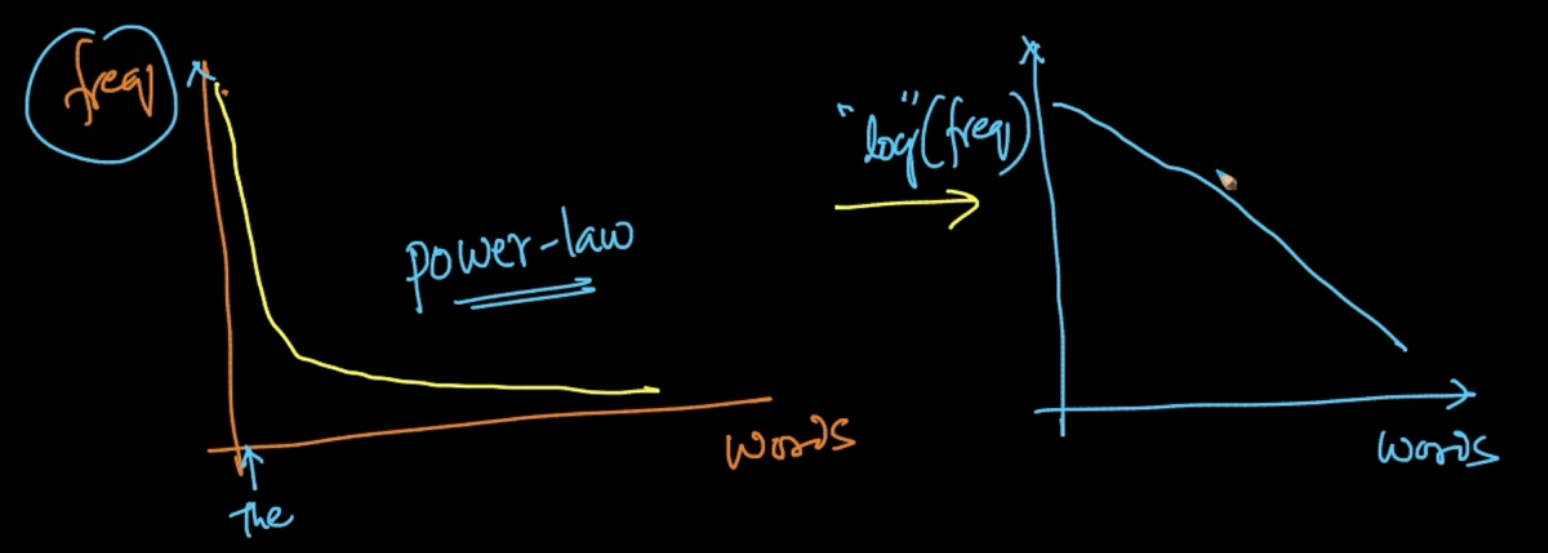 freq
power-law
words
The
"log"(freq)
words